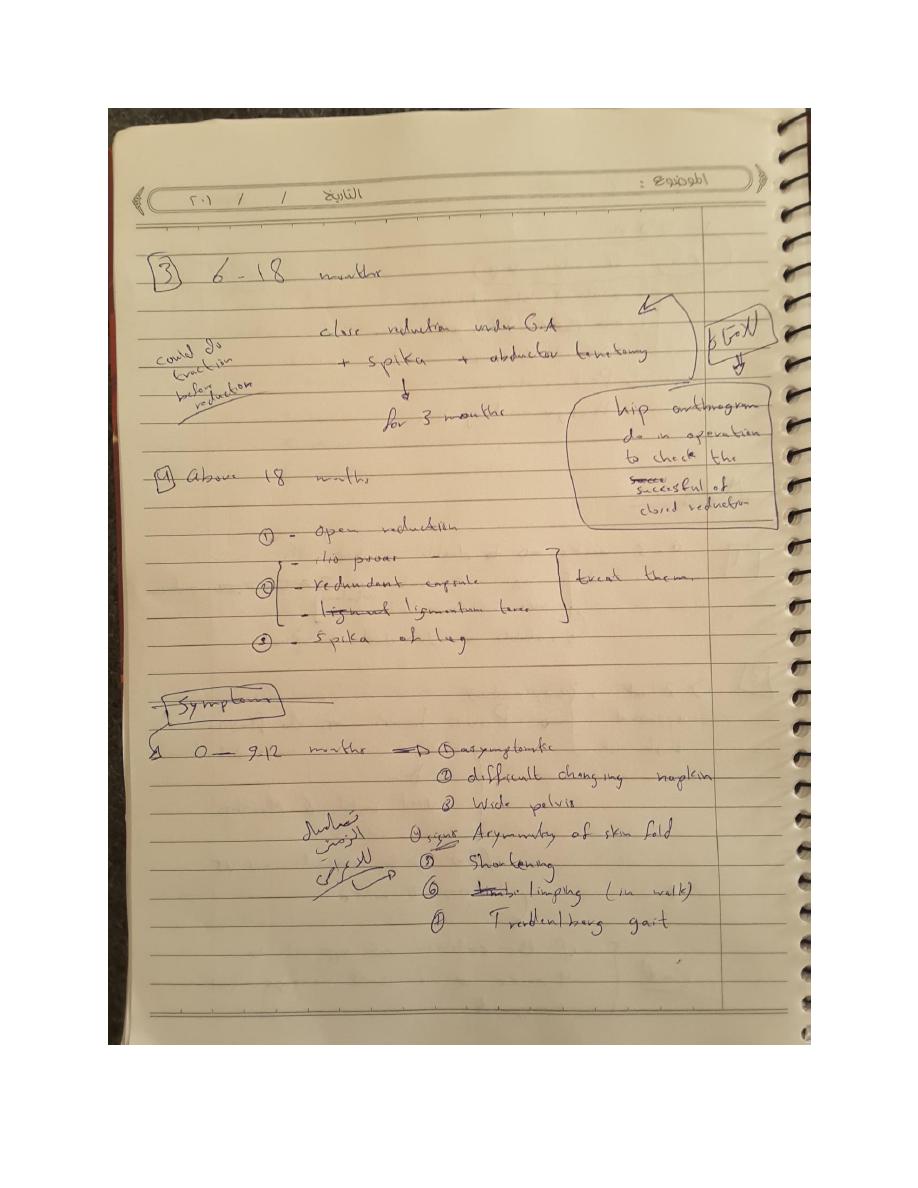 الموضوع :
التاريخ / / ٢٠١
3 6 - 18 months
close reduction under G.A
+ spika + abductor tenotomy
for 3 months
could do
traction
before
reduction
hip arthrogram
do in operation
to check the
successful of
closed reduction
4 above 18 months
① - open reduction
- ilio psoas -
② - redundant capsule
- ligmentum teres
treat them.
③ - spika of leg
Symptoms
0 — 9-12 months ⇒ ① asymptomatic
② difficult changing napkin
③ Wide pelvis
④ signs Asymmetry of skin fold
⑤ Shortening
⑥ limping (in walk)
⑦ Trendenlberg gait